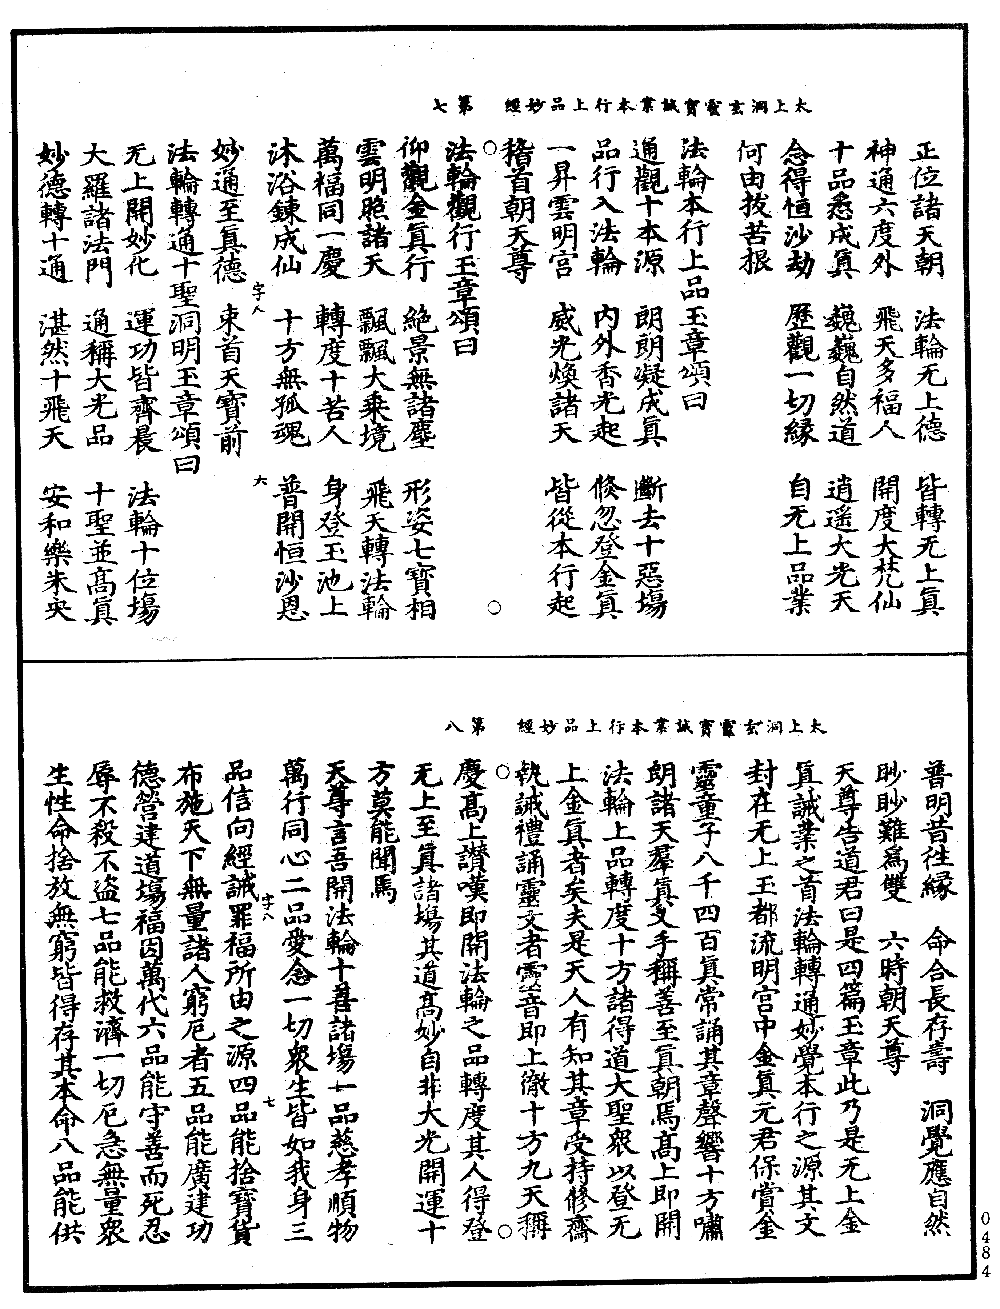 太上洞玄靈寶誡業本行上品妙經　第七
正位諸天朝　法輪无上德　皆轉无上真
神通六度外　飛天多福人　開度大梵仙
十品悉成真　巍巍自然道　逍遥大光天
念得恒沙劫　歷觀一切緣　自无上品業
何由拔苦根
法輪本行上品玉章頌曰
通觀十本源　朗朗凝成真　斷去十惡場
品行入法輪　內外香光起　倏忽登金真
一昇雲明宫　威光煥諸天　皆從本行起
稽首朝天尊
法輪觀行玉章頌曰
仰觀金真行　絶景無諸塵　形姿七寶相
雲明照諸天　飄飄大乘境　飛天轉法輪
萬福同一慶　轉度十苦人　身登玉池上
沐浴鍊成仙　十方無孤魂　普開恒沙恩
字八　六
妙通至真德　束首天寶前
法輪轉通十聖洞明玉章頌曰
无上開妙化　運功皆齊晨　法輪十位場
大羅諸法門　通稱大光品　十聖並高真
妙德轉十通　湛然十飛天　安和樂未央
太上洞玄靈寶誡業本行上品妙經　第八
普明昔往緣　命合長存壽　洞覺應自然
眇眇難爲雙　六時朝天尊
天尊告道君曰是四篇玉章此乃是无上金
真誡業之首法輪轉通妙覺本行之源其文
封在无上玉都流明宫中金真元君保賞金
靈童子八千四百真常誦其章聲響十方嘯
朗諸天羣真叉手稱善至真朝焉高上即開
法輪上品轉度十方諸得道大聖衆以登无
上金真者矣夫是天人有知其章受持修齋
執誡禮誦靈文者靈音即上徹十方九天稱
慶高上讃嘆即開法輪之品轉度其人得登
无上至真諸場其道高妙自非大光開運十
方莫能聞焉
天尊言吾開法輪十善諸場一品慈孝順物
萬行同心二品愛念一切衆生皆如我身三
字八　七
品信向經誡罪福所由之源四品能捨寶貨
布施天下無量諸人窮厄者五品能廣建功
德營建道場福因萬代六品能守善而死忍
辱不殺不盗七品能救濟一切厄急無量衆
生性命捨放無窮皆得存其本命八品能供
0484